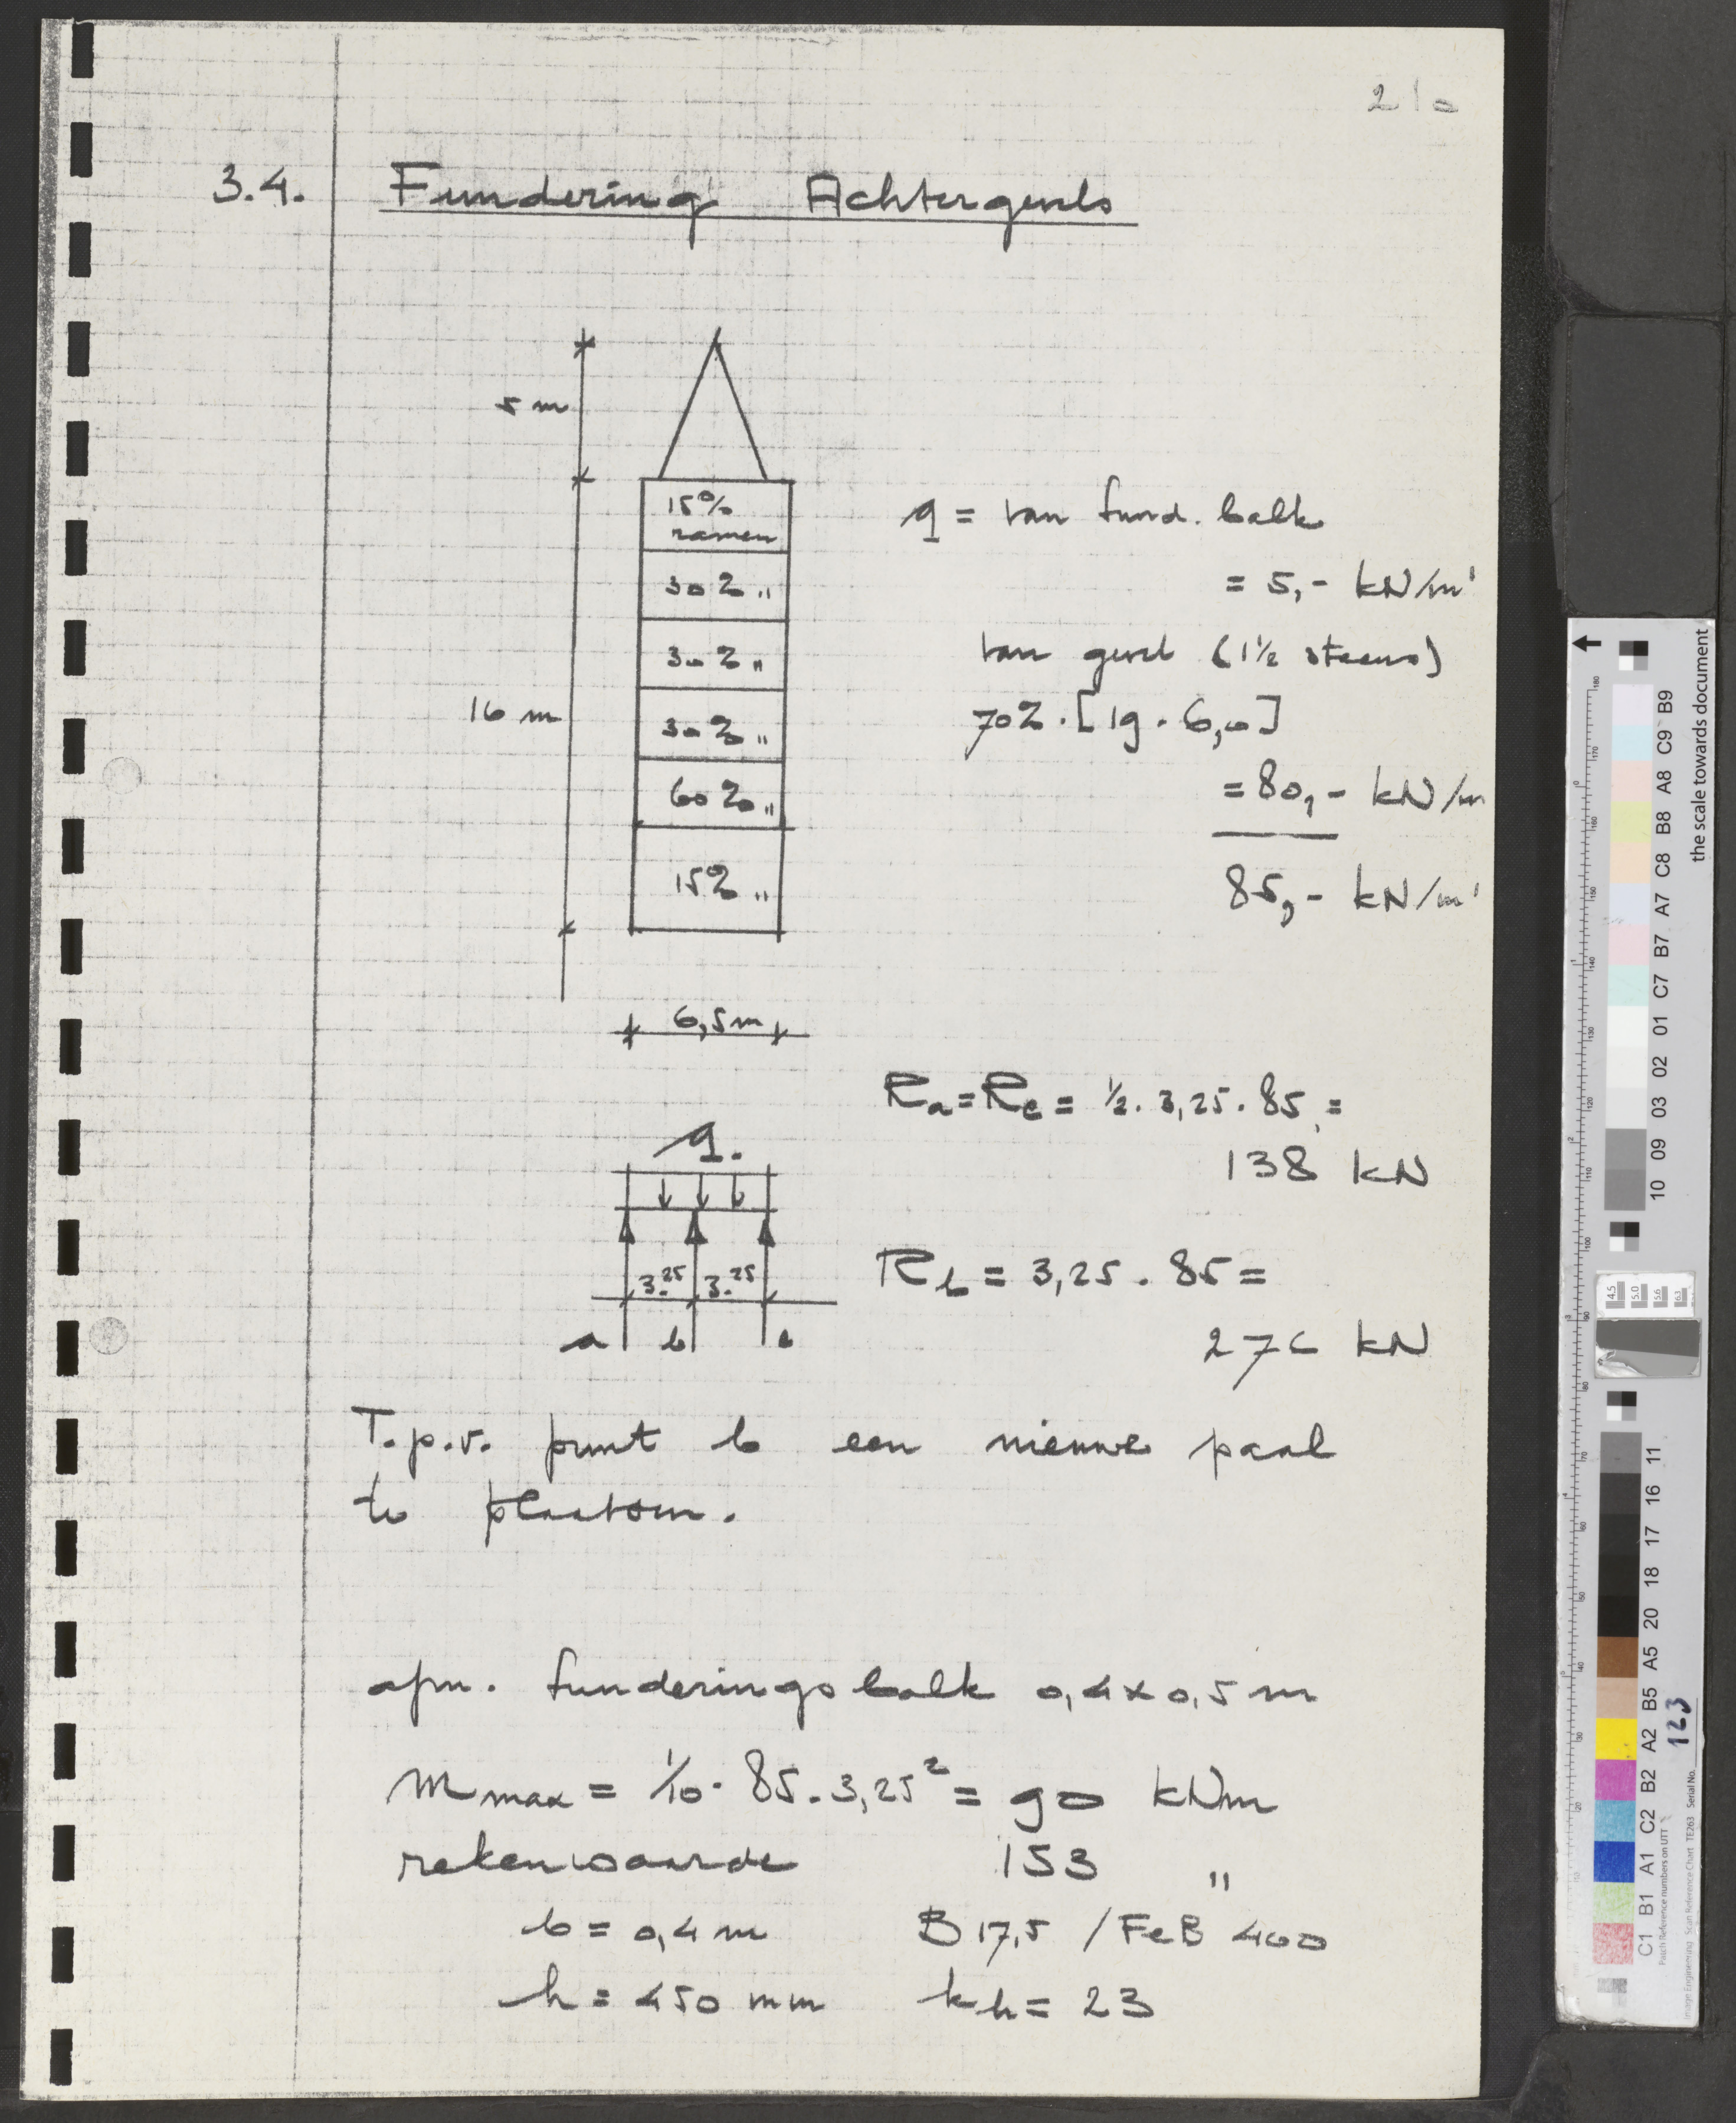 21a
3.4. Fundering Achtergevels
5 m
15%
ramen
30% "
30% "
30% "
60% "
15% "
16 m
6,5m
q = van fund. balk
= 5,- kN/m'
van gevel (1½ steens)
70%.[19.6,0]
=80,- kN/m
85,- kN/m'
q.
3.25 3.25
a b c
Ra=Rc = ½. 3,25. 85 =
138 kN
Rb = 3,25 . 85 =
276 kN
T.p.v. punt b een nieuwe paal
te plaatsen.
afm. funderingsbalk 0,4x0,5m
Mmax = 1/10. 85.3,25² = 90 kNm
rekenwaarde 153 "
b = 0,4 m B 17,5 / FeB 400
h = 450 mm kh = 23
the scale towards document
C1 B1 A1 C2 B2 A2 B5 A5 20 18 17 16 11
10 09 03 02 01 C7 B7 A7 C8 B8 A8 C9 B9
4.5 5.0 5.6 6.3
Patch Reference numbers on UTT
Image Engineering Scan Reference Chart TE263 Serial No. 123